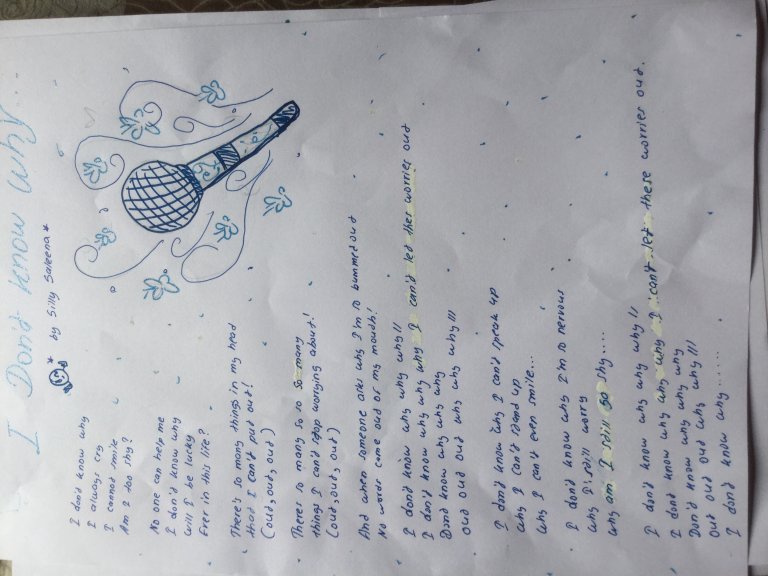 I Don't know why...
* by Silly Saleena *
I don't know why
I always cry
I cannot smile
Am I too shy?
No one can help me
I don't know why
Will I be lucky
Ever in this life?
There's so many things in my head
that I can't put out!
(out, out, out)
There's so many so so so many
things I can't stop worying about!
(out, out, out)
And when someone asks why I'm so bummed out
No words come out of my mouth!
I don't know why why why!!
I don't know why why why I can't let ther worries out
Don't know why why why
Out out out why why why!!!
I don't know why I can't speak up
Why I can't stand up
Why I can't even smile...
I don't know why I'm so nervous
Why I still worry
Why am I still so shy....
I don't know why why why!!
I don't know why why why I can't let these worries out.
Don't know why why why
Out out out why why!!!
I don't know why......